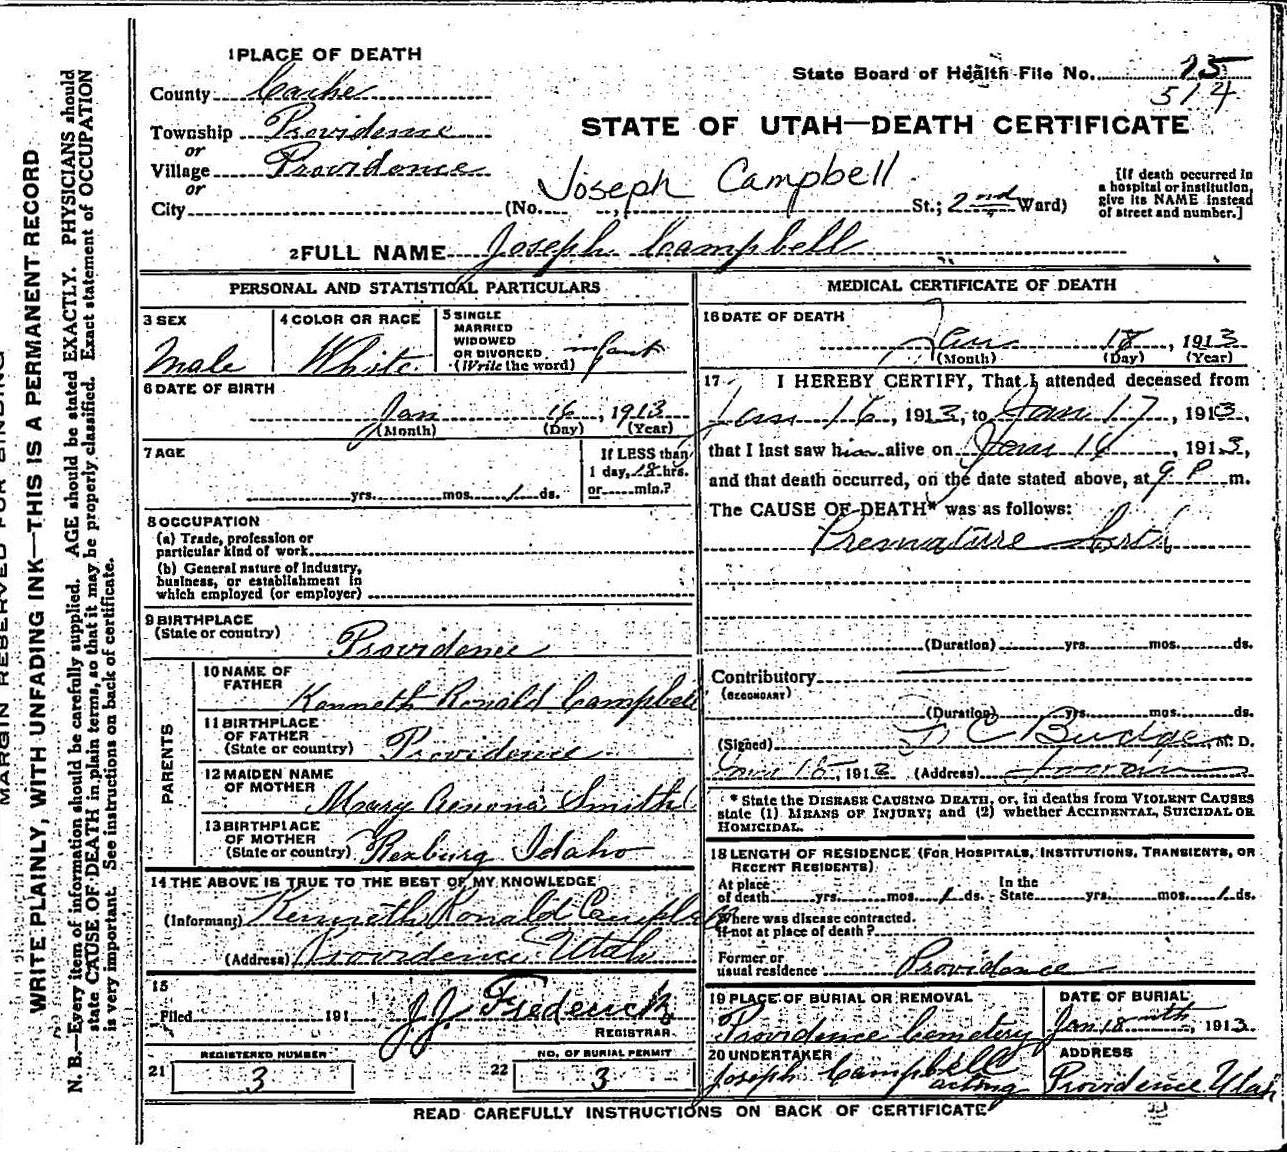 MARGIN RESERVED FOR BINDING
WRITE PLAINLY, WITH UNFADING INK—THIS IS A PERMANENT RECORD
N. B.—Every item of information should be carefully supplied. AGE should be stated EXACTLY. PHYSICIANS should
state CAUSE OF DEATH in plain terms, so that it may be properly classified. Exact statement of OCCUPATION
is very important. See instructions on back of certificate.
1 PLACE OF DEATH
County Cache
Township Providence
or
Village Providence
or
City (No. Joseph Campbell St.; 2nd Ward)
State Board of Health File No. 15
514
STATE OF UTAH—DEATH CERTIFICATE
[If death occurred in
a hospital or institution,
give its NAME instead
of street and number.]
2 FULL NAME Joseph Campbell
PERSONAL AND STATISTICAL PARTICULARS
3 SEX
Male
4 COLOR OR RACE
White
5 SINGLE
MARRIED
WIDOWED
OR DIVORCED infant
(Write the word)
6 DATE OF BIRTH
Jan 16, 1913
(Month) (Day) (Year)
7 AGE
yrs. mos. 1 ds.
If LESS than
1 day, 18 hrs.
or min.?
8 OCCUPATION
(a) Trade, profession or
particular kind of work
(b) General nature of industry,
business, or establishment in
which employed (or employer)
9 BIRTHPLACE
(State or country)
Providence
PARENTS
10 NAME OF
FATHER
Kenneth Ronald Campbell
11 BIRTHPLACE
OF FATHER
(State or country) Providence
12 MAIDEN NAME
OF MOTHER
Mary Smith
13 BIRTHPLACE
OF MOTHER
(State or country) Rexburg Idaho
14 THE ABOVE IS TRUE TO THE BEST OF MY KNOWLEDGE
(Informant) Kenneth Ronald Campbell
(Address) Providence Utah
15
Filed 191 J. J. Frederick
REGISTRAR
REGISTERED NUMBER
21 3
NO. OF BURIAL PERMIT
22 3
MEDICAL CERTIFICATE OF DEATH
16 DATE OF DEATH
Jan 18, 1913
(Month) (Day) (Year)
17 I HEREBY CERTIFY, That I attended deceased from
Jan 16, 1913, to Jan 17, 1913,
that I last saw him alive on Jan 16, 1913,
and that death occurred, on the date stated above, at 9 P m.
The CAUSE OF DEATH* was as follows:
Premature birth
(Duration) yrs. mos. ds.
Contributory
(SECONDARY)
(Duration) yrs. mos. ds.
(Signed) D C Budge, M. D.
Jan 18, 1913 (Address) Logan
* State the DISEASE CAUSING DEATH, or, in deaths from VIOLENT CAUSES
state (1) MEANS OF INJURY; and (2) whether ACCIDENTAL, SUICIDAL OR
HOMICIDAL.
18 LENGTH OF RESIDENCE (FOR HOSPITALS, INSTITUTIONS, TRANSIENTS, OR
RECENT RESIDENTS)
At place
of death yrs. mos. 1 ds.
In the
State yrs. mos. 1 ds.
Where was disease contracted.
if not at place of death?
Former or
usual residence Providence
19 PLACE OF BURIAL OR REMOVAL
Providence Cemetery
DATE OF BURIAL
Jan 18th, 1913
20 UNDERTAKER
Joseph Campbell
acting
ADDRESS
Providence Utah
READ CAREFULLY INSTRUCTIONS ON BACK OF CERTIFICATE